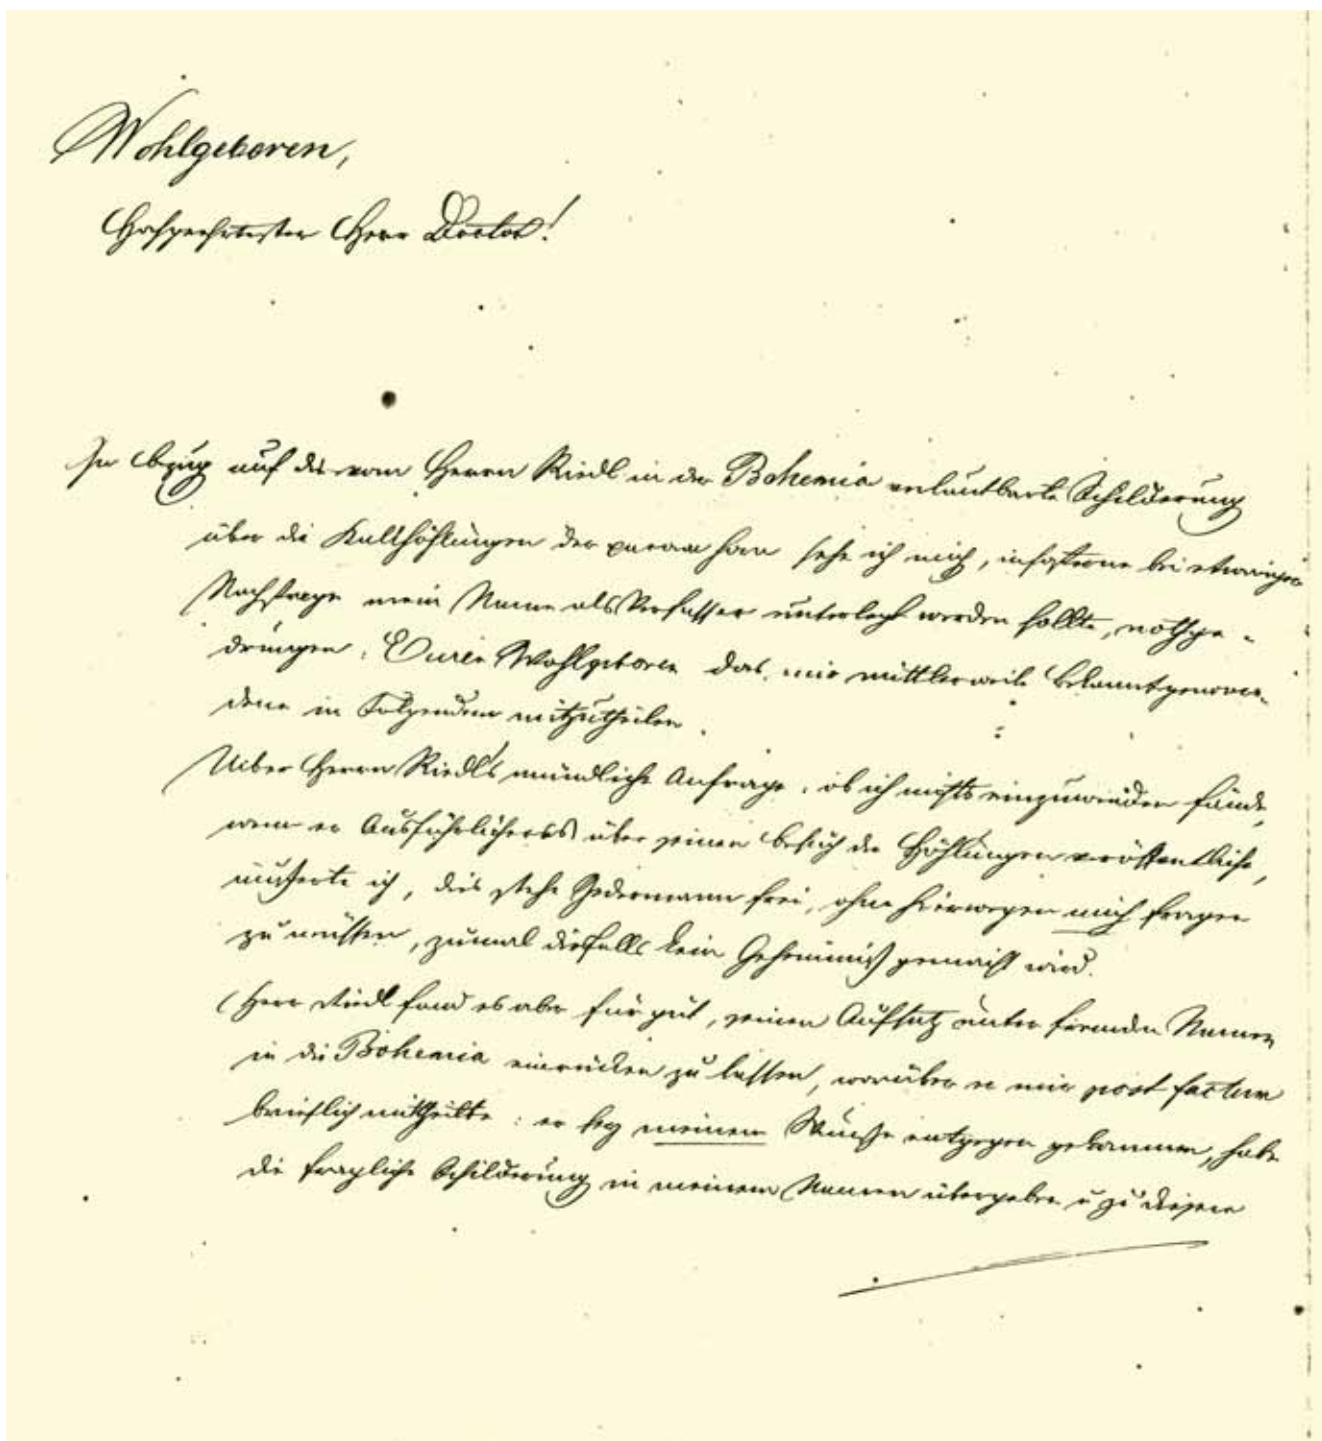 Wohlgeboren,
Hochgeehrtester Herr Doctor!
In Bezug auf die vom Herrn Riedl in der Bohemia verlautbarte Schilderung
über die Kalkhöhlungen der sehe ich mich, insoferne bei etwaiger
Nachfrage mein Name als Verfasser unterlegt werden sollte, nothge-
drungen, Euren Wohlgeboren das, mir mittlerweile bekanntgewor-
dene in Folgendem mitzutheilen.
Uiber Herrn Riedl's mündliche Anfrage, ob ich nichts einzuwenden fände,
wenn er Ausführlicheres über seinen Besuch der Höhlungen veröffentliche,
äußerte ich, dies stehe Jedermann frei, ohne hierwegen mich fragen
zu müssen, zumal diesfalls kein Geheimniß gemacht wird.
Herr Riedl fand es aber für gut, seinen Aufsatz unter fremden Namen
in die Bohemia einrücken zu lassen, worüber er mir post factum
brieflich mittheilte: er sey meinem Wunsche entgegen gekommen, habe
die fragliche Schilderung in meinem Namen übergeben u zu diesem